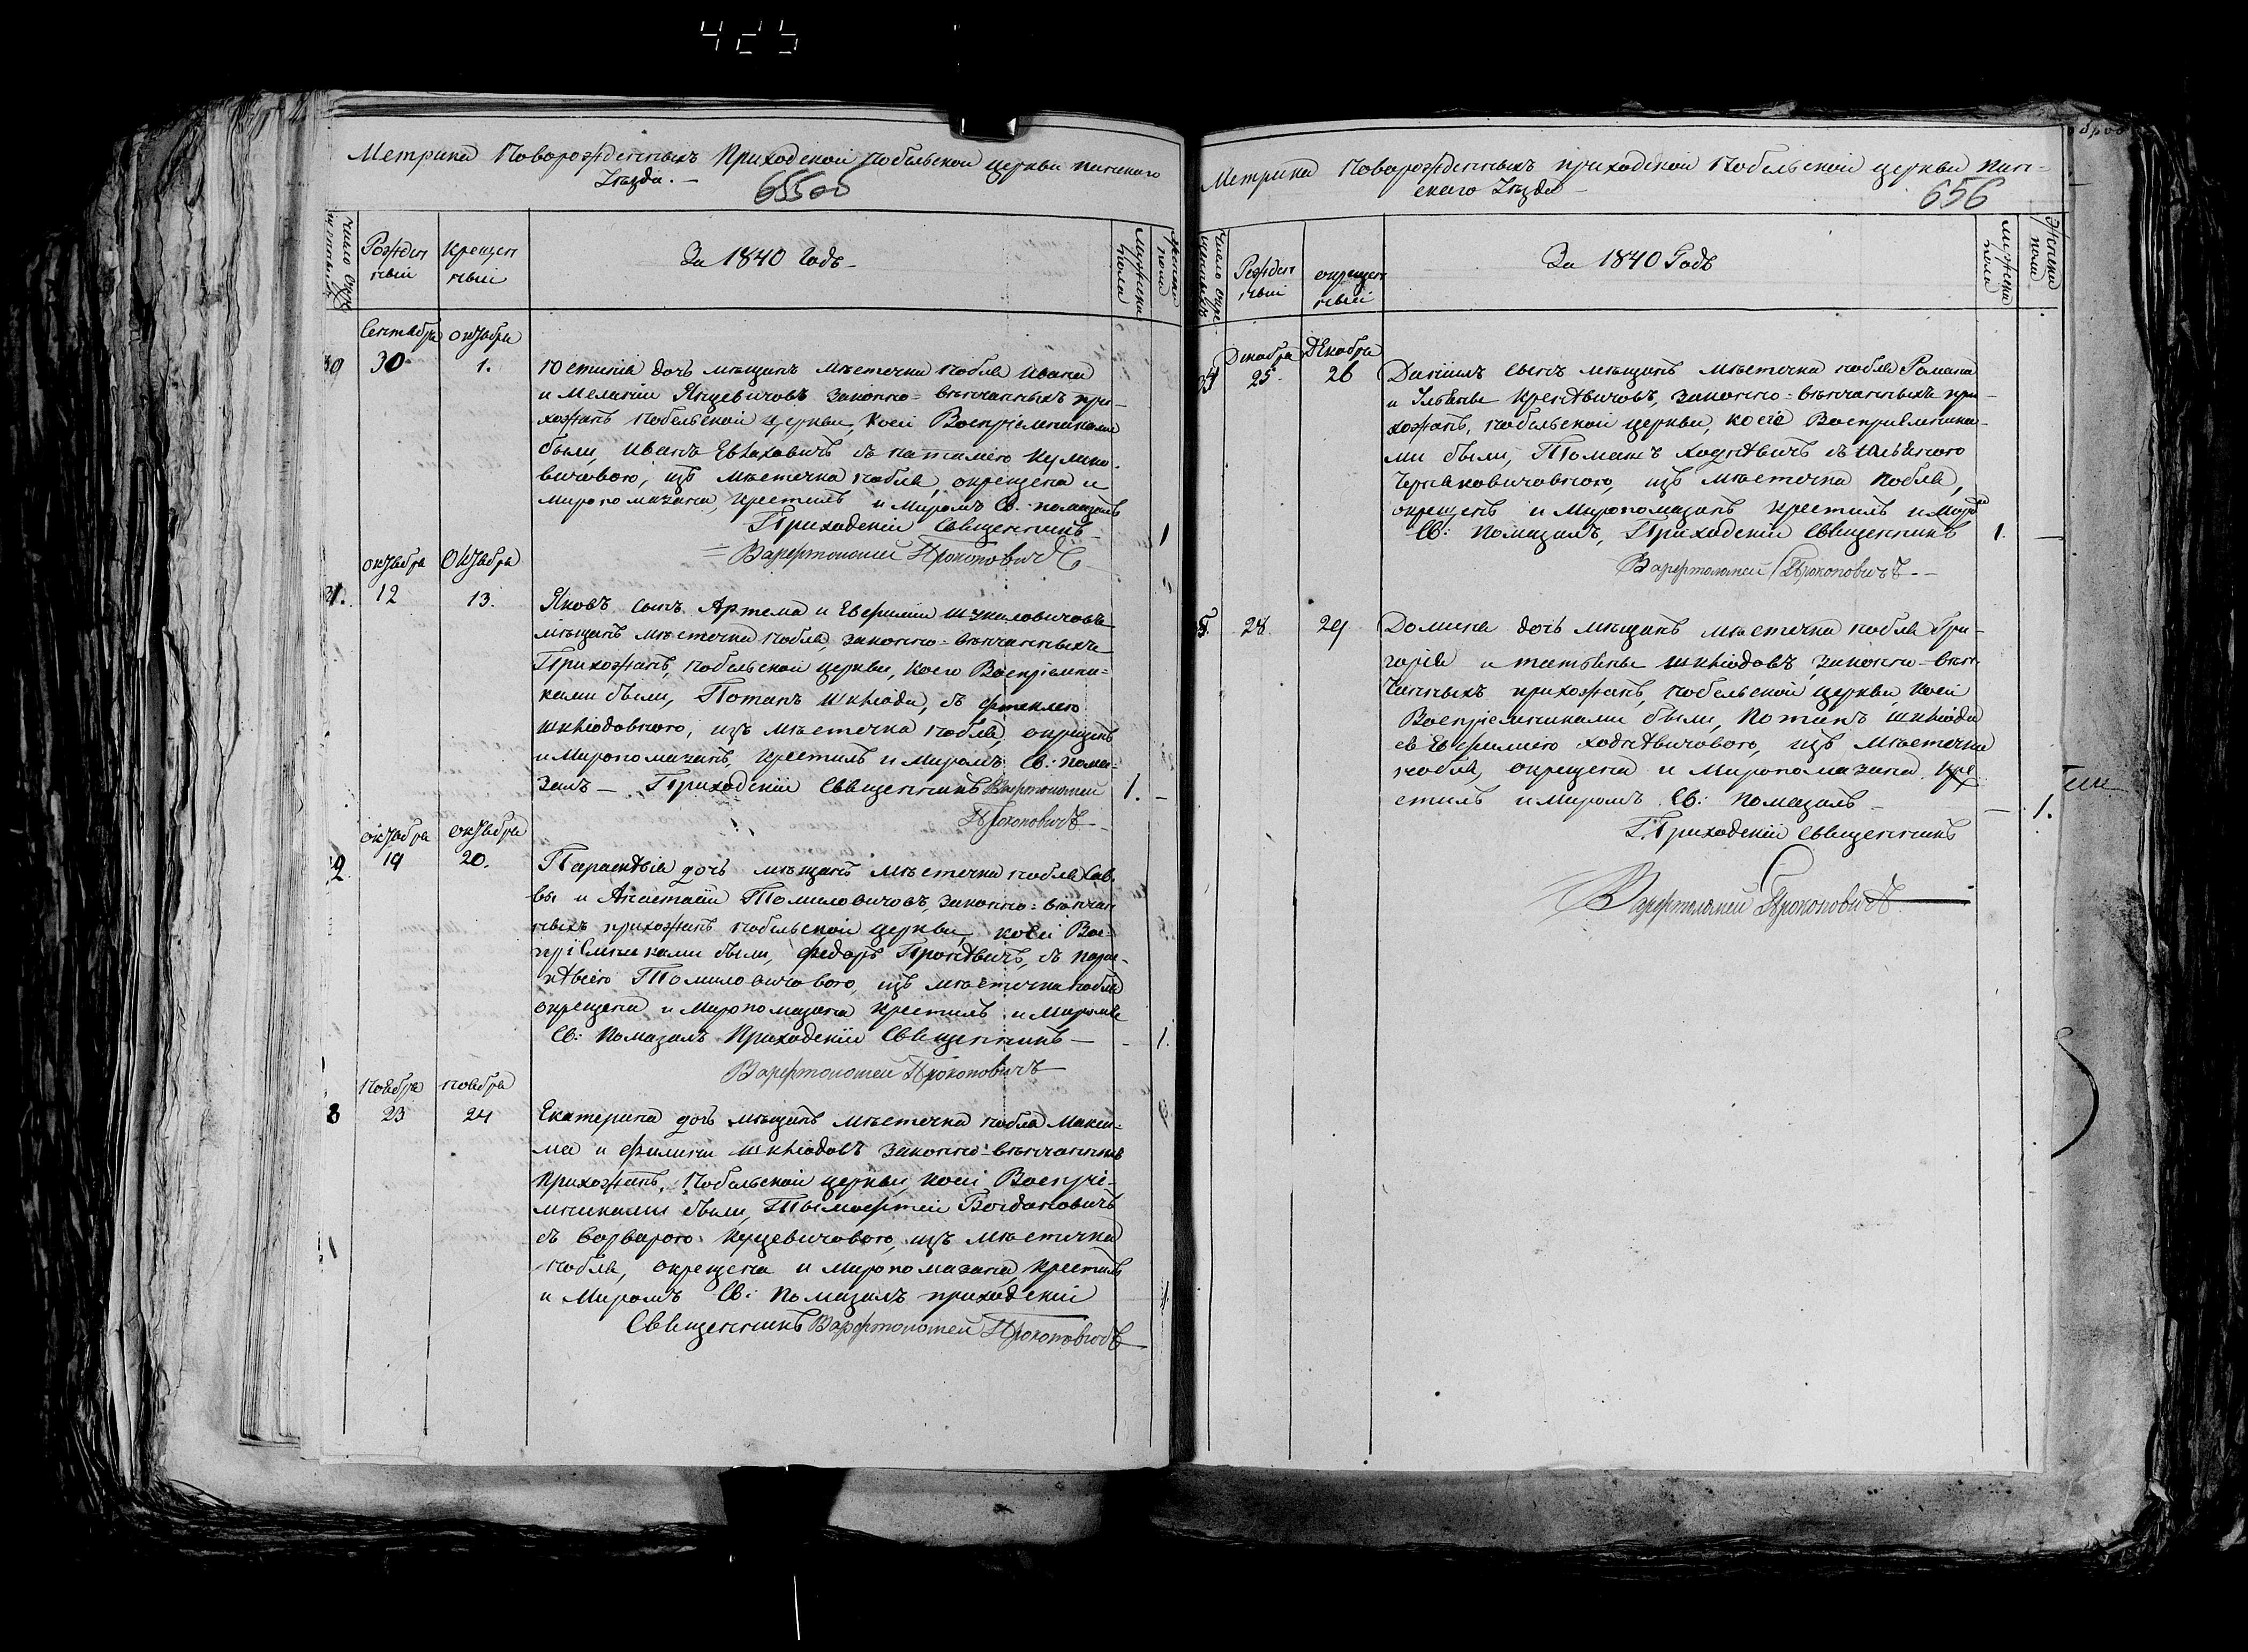 425
Метрика Новорожденныхъ Приходской Нобельской церкви пинскаго
Уѣзда. —
655 об
число окре-
щенныхъ
Рожден
ный
Крещен
ный
За 1840 Годъ
Мужеска
пола
Женска
пола
Сентября Октября
30 30 1.
Юстинія дочь мѣщанъ мѣстечка Нобля Ивана
и Меланіи Яцевичовъ законно=вѣнчанныхъ при-
хожанъ Нобельской Церкви, коей Воспріемниками
были, Иванъ Евлаховичъ съ
вичовою, изъ мѣстечка Нобля, окрещена и
миропомазана, крестилъ и Миромъ Св. помазалъ
Приходскій Священникъ 1
Варфтоломей Прокоповичъ
Октября Октября
31. 12 13.
Яковъ сынъ Артема и Евфиміи
мѣщанъ мѣстечка Нобля, законно=вѣнчанныхъ
Прихожанъ, Нобельской церкви, коего Воспріемни=
ками были, Потапъ Шклода, съ Феклею
Шклодовною, изъ мѣстечка Нобля, окрещенъ
и Миропомазанъ, крестилъ и Миромъ Св: пома=
залъ — Приходскій Священникъ Варфтоломей 1. —
Прокоповичъ
Октября Октября
32 19 20.
Параскѣвія дочь мѣщанъ мѣстечка Нобля Сав-
вы и Анастасіи Томиловичовъ, законно=вѣнчан
ныхъ прихожанъ Нобельской церкви, коей Вос=
пріемниками были, Федоръ Пронѣвичъ, съ Парас-
кѣвіею Томиловичовою, изъ мѣстечка Нобля
окрещена и Миропомазана крестилъ и Миромъ
Св: Помазалъ Приходскій Священникъ — - 1.
Варфтоломей Прокоповичъ
Ноября Ноября
3 23 24
Екатерина дочь мѣщанъ мѣстечка Нобля Макси=
ма и Шклодовъ законно=вѣнчанныхъ
прихожанъ, Нобельской церкви, коей Воспріе-
мниками были, Тымофтей Богдановичъ
съ Варварою Куцевичовою, изъ мѣстечка
Нобля, окрещена и миропомазана, крестилъ
и Миромъ Св: Помазалъ приходскій 1.
Священникъ Варфтоломей Прокоповичъ
Метрика Новорожденныхъ приходской Нобельской церкви Пин=
скаго Уѣзда —
656
число окре-
щенныхъ
Рожден
ный
окрещен
ный
За 1840 Годъ
мужеска
пола
Женска
пола
Декабря Декабря
34 25. 26
Даніилъ сынъ мѣщанъ мѣстечка Нобля Романа
и Ульяны Кренѣвичовъ, законно=вѣнчанныхъ при-
хожанъ, Нобельской церкви, коего Воспріемника-
ми были, Томашъ Ходнѣвичъ съ
изъ мѣстечка Нобля,
окрещенъ и Миропомазанъ крестилъ и Миромъ
Св: Помазалъ, Приходскій Священникъ 1. —
Варфтоломей Прокоповичъ —
5. 28 29
Домина дочь мѣщанъ мѣстечка Нобля Гри-
горія и татіяны Шклодовъ, законно-вѣн
чанныхъ прихожанъ, Нобельской церкви, коей
Воспріемниками были, Потапъ Шклода
съ Евфиміею Ходнѣвичовою, изъ мѣстечка
Нобля, окрещена и Миропомазана, кре
стилъ и Миромъ Св: Помазалъ — — 1.
Приходскій Священникъ
Варфтоломей Прокоповичъ